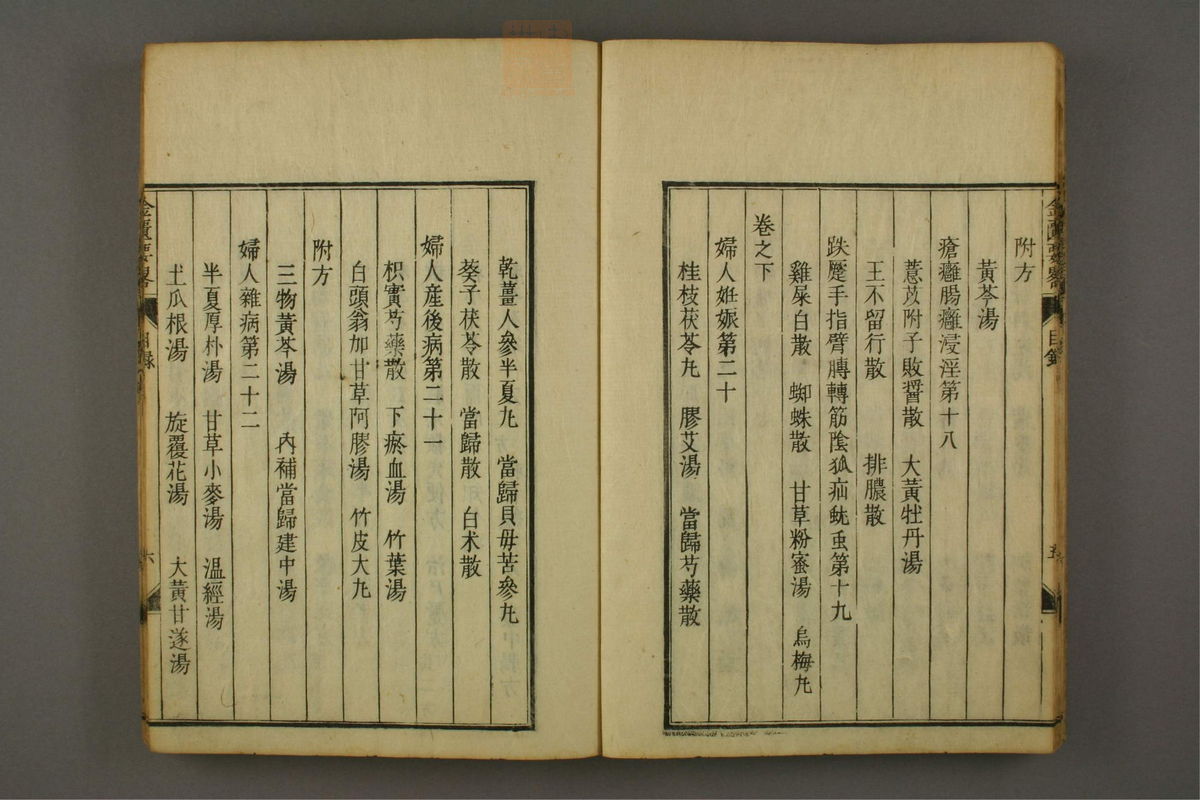 金匱要畧 目錄 五
附方
黃芩湯
瘡癰腸癰浸淫第十八
薏苡附子敗醬散 大黃牡丹湯
王不留行散 排膿散
趺蹷手指臂腨轉筋陰狐疝蚘虫第十九
雞屎白散 蜘蛛散 甘草粉蜜湯 烏梅丸
卷之下
婦人妊娠第二十
桂枝茯苓丸 膠艾湯 當歸芍藥散
乾薑人參半夏丸 當歸貝毋苦參丸
葵子茯苓散 當歸散 白术散
婦人產後病第二十一
枳實芍藥散 下瘀血湯 竹葉湯
白頭翁加甘草阿膠湯 竹皮大丸
附方
三物黃芩湯 內補當歸建中湯
婦人雜病第二十二
半夏厚朴湯 甘草小麥湯 溫經湯
土瓜根湯 旋覆花湯 大黃甘遂湯
金匱要畧 目錄 六